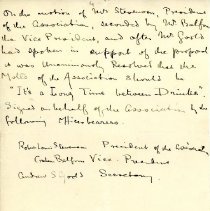 On the motion of Mr Stevenson, President
of the Association, seconded by Mr Balfour
the Vice President, and after Mr Gould
had spoken in support of the proposal
it was Unanimously Resolved that the
Motto of the Association should be
"It's a Long Time between Drinks".
Signed on behalf of the Association by the
following Officebearers.
Stevenson President of the
Balfour Vice-President
Andrew Secretary.